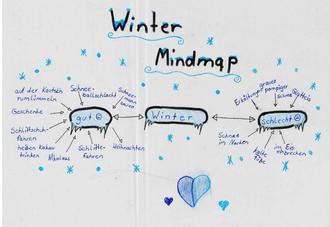 Winter
Mindmap
auf der Kasteln
rumlümmeln
Schnee-
ballschlacht
Schnee-
mann
bauen
Geschenke
gut
Schlittschuh-
fahren
heißen Kakau
trinken
Nikolaus
Schlitte-
fahren
Weihnachten
Winter
Erkältung
grauer
pampiger
Schnee
schlecht
Schnee
im Nacken
kalte
Füße
im Eis
einbrechen